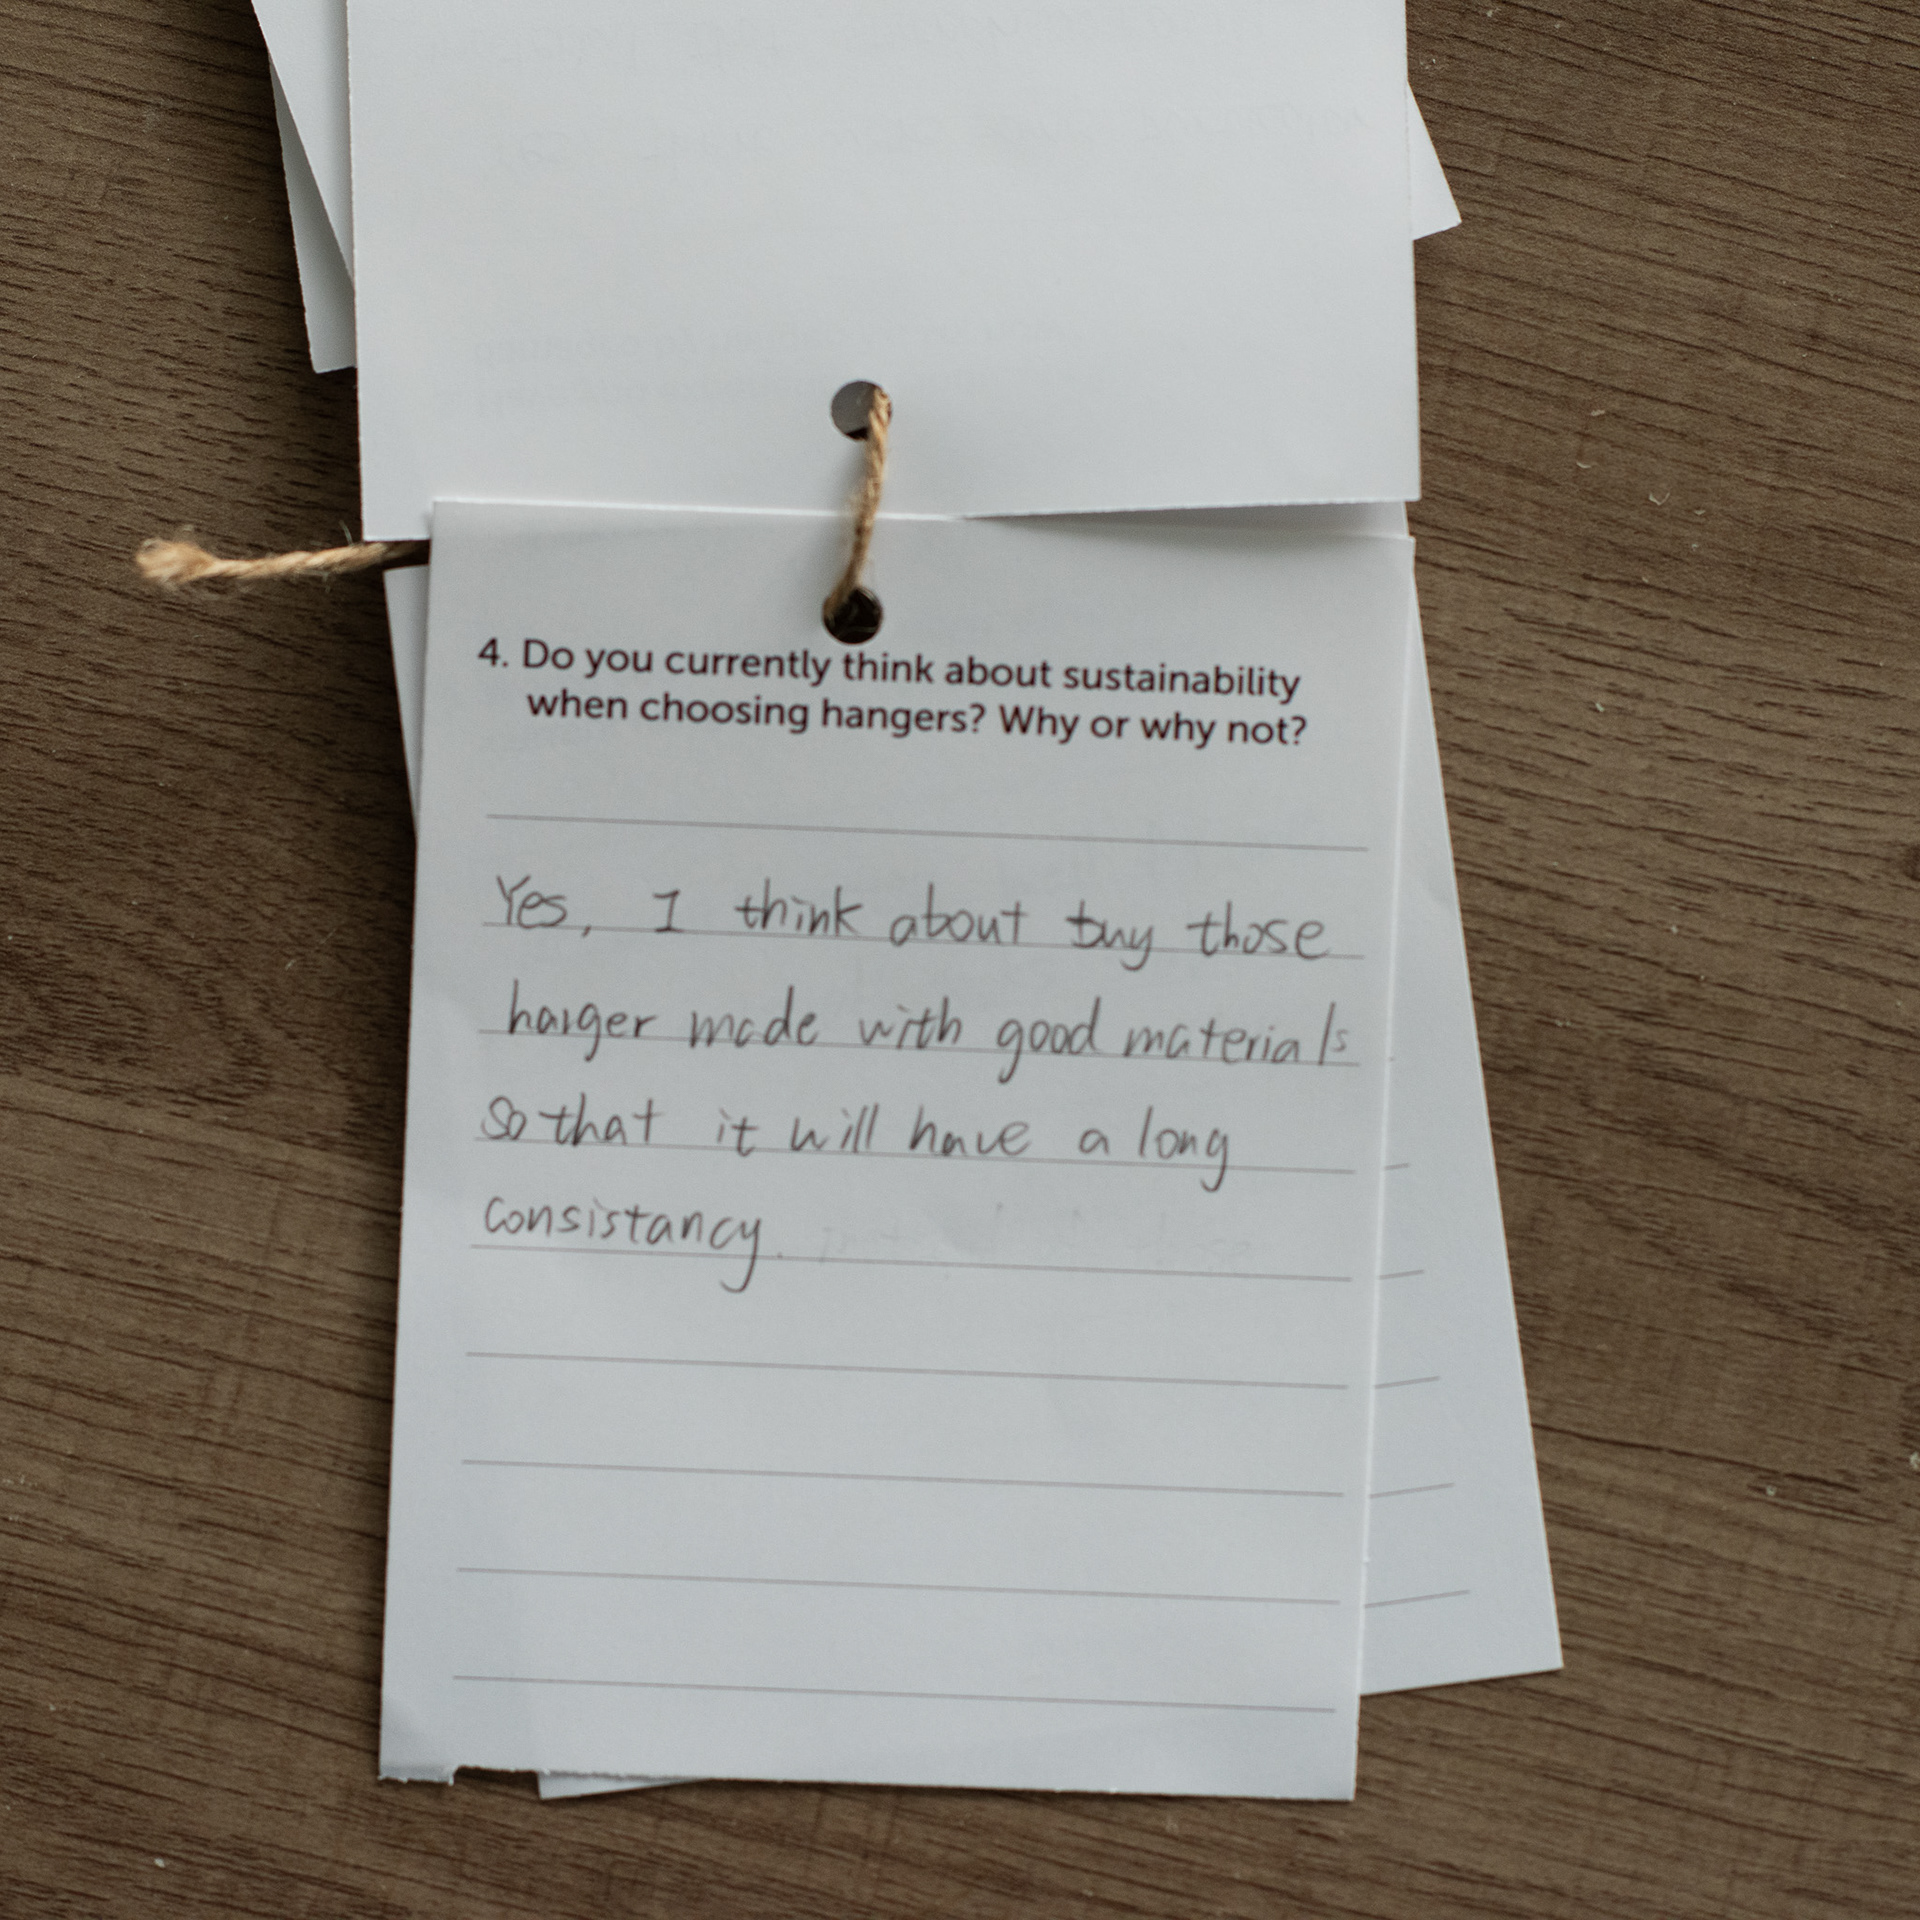 4. Do you currently think about sustainability
when choosing hangers? Why or why not?
Yes, I think about buy those
hanger made with good materials
so that it will have a long
consistancy.